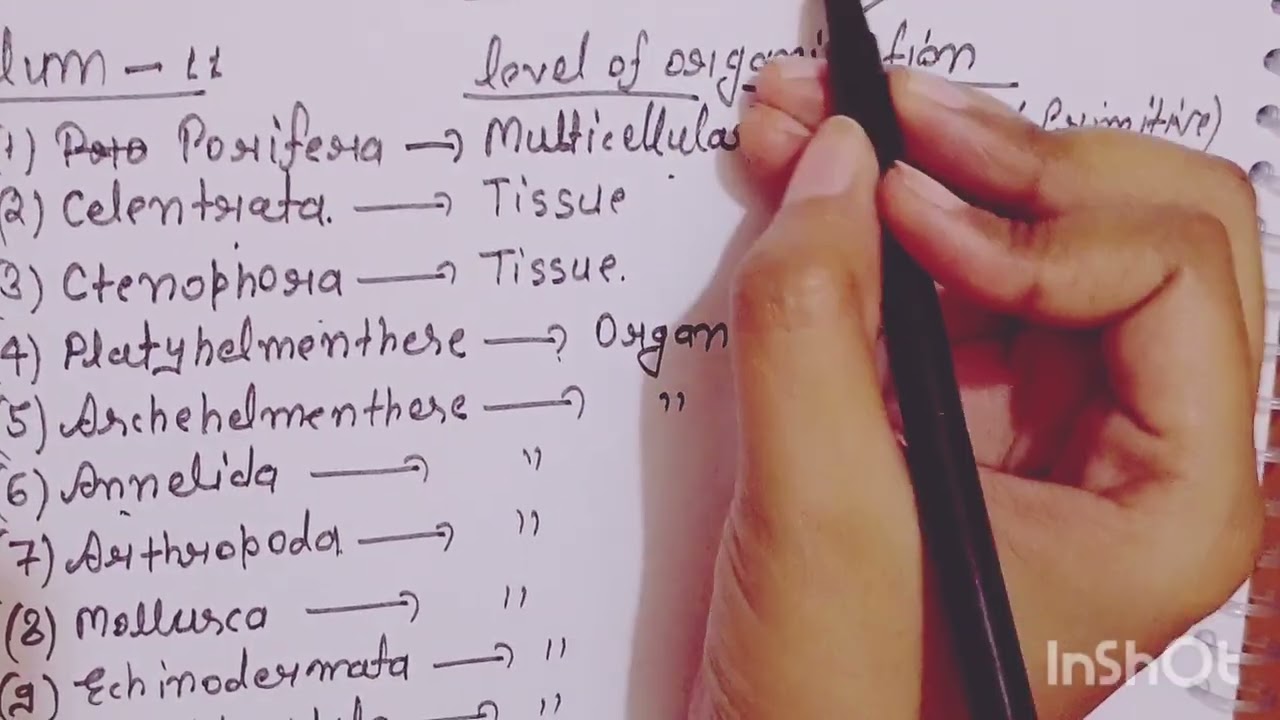 lum - 11 level of organisation
1) Porifera → Multicellular (Primitive)
(2) Celentrata. → Tissue
3) Ctenophora → Tissue.
4) Platyhelmenthese → Organ
(5) Archehelmenthese → "
(6) Annelida → "
7) Arthropoda → "
(8) Mollusca → "
(9) Echinodermata → "
→ "
InShOt